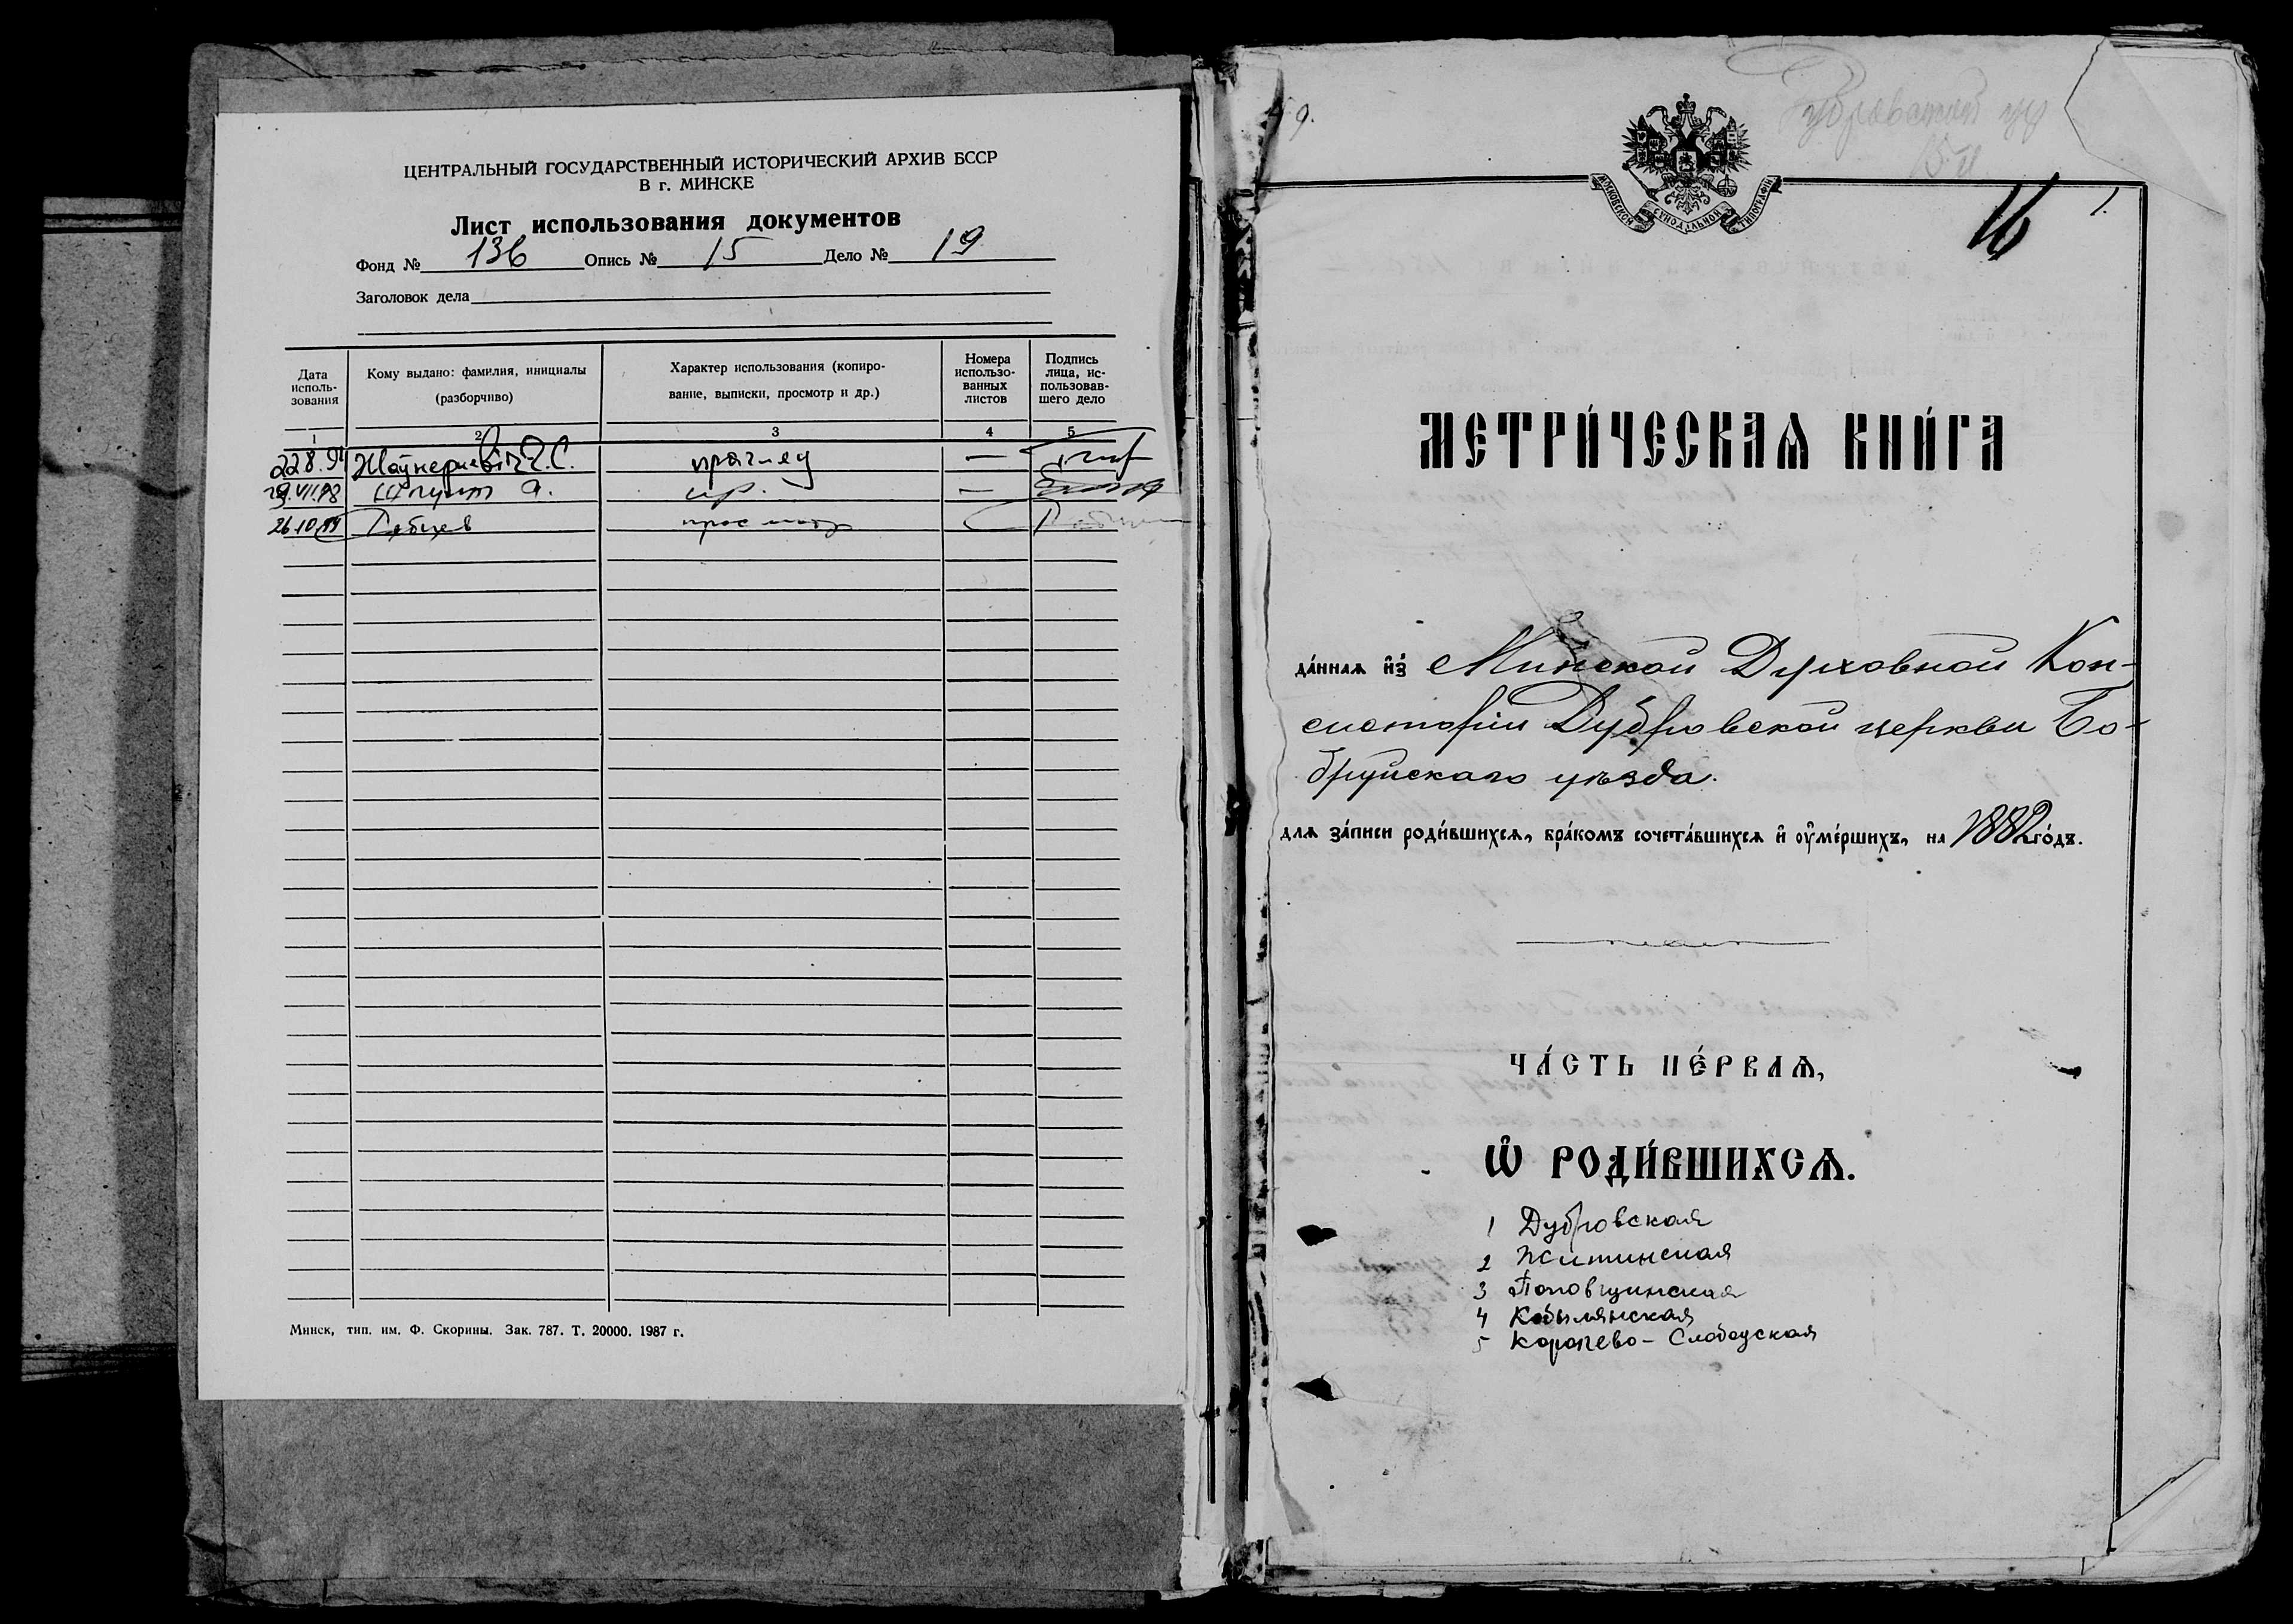 ЦЕНТРАЛЬНЫЙ ГОСУДАРСТВЕННЫЙ ИСТОРИЧЕСКИЙ АРХИВ БССР
В г. МИНСКЕ
Лист использования документов
Фонд № 136 Опись № 15 Дело № 19
Заголовок дела
Дата исполь-
зования
Кому выдано: фамилия, инициалы
(разборчиво)
Характер использования (копиро-
вание, выписки, просмотр и др.)
Номера
использо-
ванных
листов
Подпись
лица, ис-
пользовав-
шего дело
1 2 3 4 5
прагляд —
пр. —
26.10 просмотр
Минск, тип. им. Ф. Скорины. Зак. 787. Т. 20000. 1987 г.
9.
МОСКОВСКОЙ СѴНОДАЛЬНОЙ ТИПОГРАФІИ
16
1.
МЕТРИ́ЧЕСКАѦ КНИ́ГА
да́ннаѧ и҆з̾ Минской Духовной Кон-
систоріи Дубровской церкви Бо-
бруйскаго уѣзда.
для за́писи роди́вшихсѧ, бра́комъ сочета́вшихсѧ и҆ ᲂу҆ме́ршихъ, на 1882 го́дъ.
ЧА́СТЬ ПЕ́РВАѦ,
Ѡ҆ РОДИ́ВШИХСѦ.
1 Дубровская
2 Житинская
3 Поповщинская
4 Кобылянская
5 Королево-Слободская